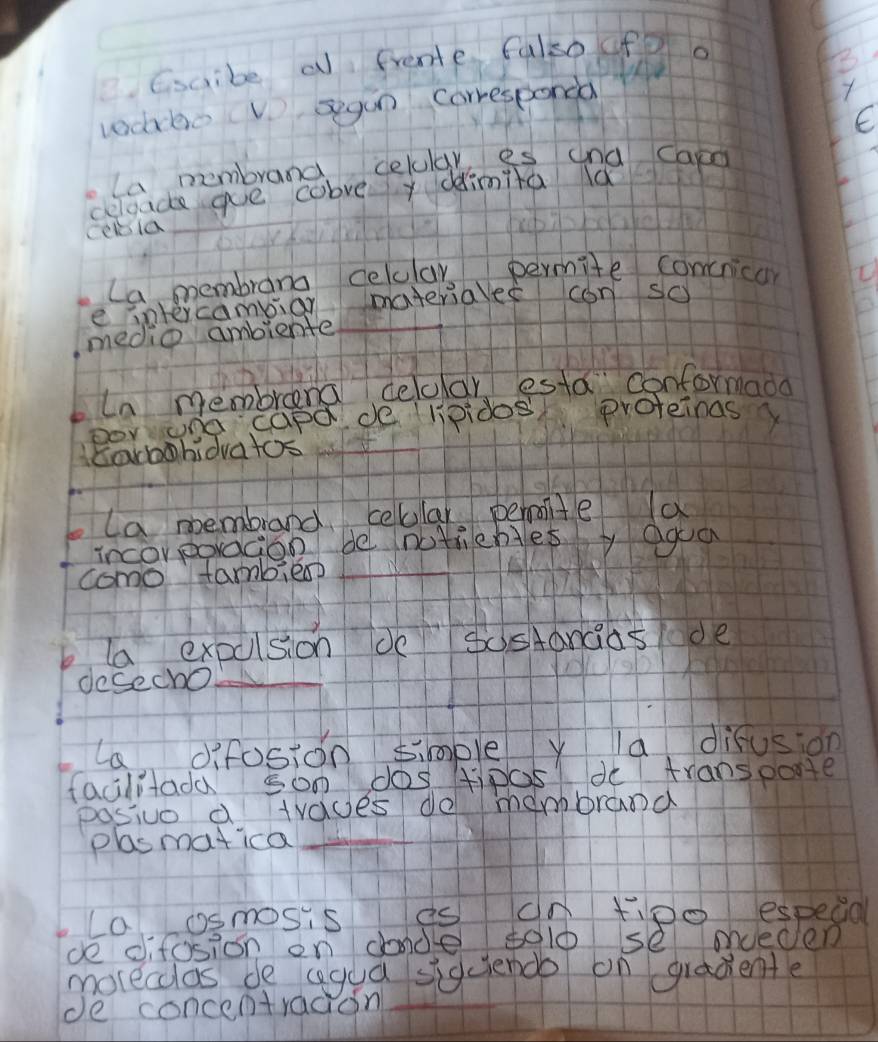 3. Escribe al frente falso (f) o
verdadero (V) segun corresponda
La membrana celular es una capa
delgada que cubre y delimita la
celula
La membrana celular permite comunicar
e intercambiar materiales con su
medio ambiente
La membrana celular esta conformada
por una capa de lipidos, proteinas y
carbohidratos
La membrana celular permite la
incorporación de nutrientes y agua
como también
la expulsión de sustancias de
desecho
La difusión simple y la difusion
facilitada son dos tipos de transporte
pasivo a traves de membrana
plasmatica
La osmosis es un tipo especial
de difusión en donde solo se mueven
moleculas de agua siguiendo un gradiente
de concentración
3
y
E
4